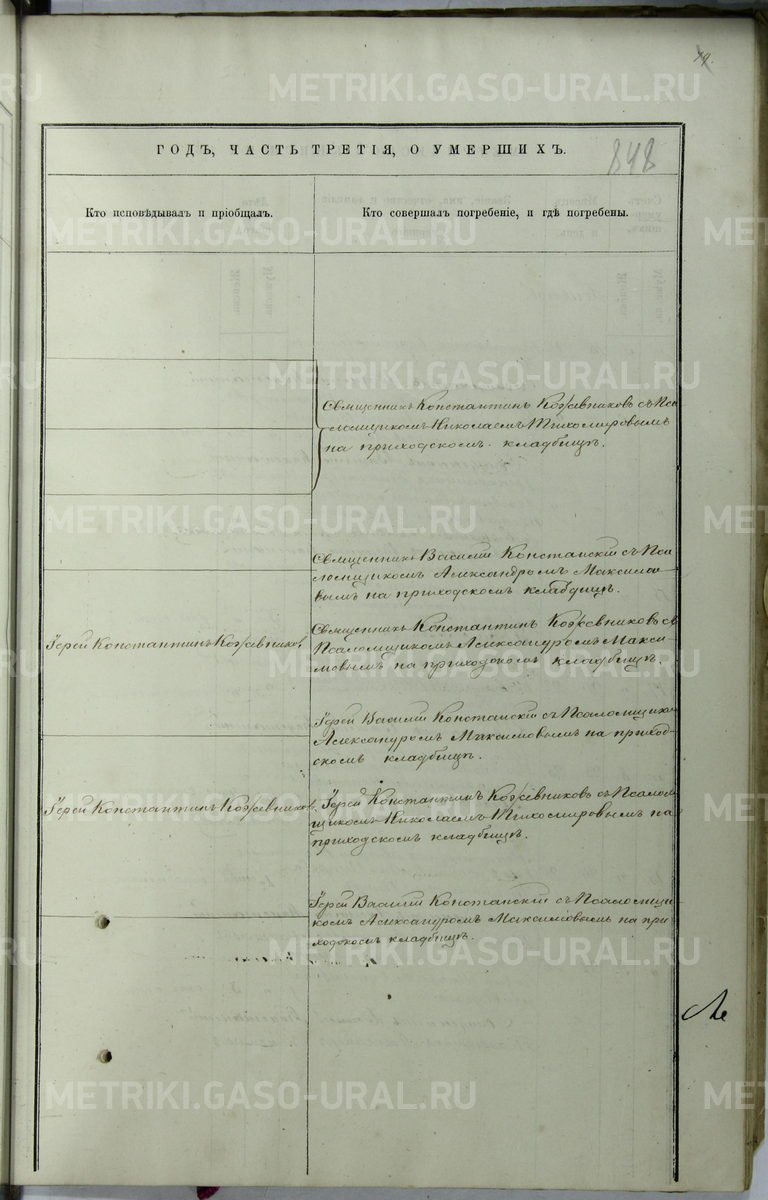 44.
848
ГОДЪ, ЧАСТЬ ТРЕТІЯ, О УМЕРШИХЪ.
Кто исповѣдывалъ и пріобщалъ.
Кто совершалъ погребеніе, и гдѣ погребены.
Священникъ Константинъ Кожевниковъ съ Пса
ломщикомъ Николаемъ Тихомировымъ
на приходскомъ кладбищѣ.
Священникъ Василій Констанскій съ Пса
ломщикомъ Александромъ Максимо
вымъ на приходскомъ кладбищѣ.
Іерей Константинъ Кожевников
Священникъ Константинъ Кожевниковъ съ
Псаломщикомъ Александромъ Макси-
мовымъ на приходскомъ кладбищѣ.
Іерей Василій Констанскій съ Псаломщиком
Александромъ Максимовымъ на приход-
скомъ кладбищѣ.
Іерей Константинъ Кожевников
Іерей Константинъ Кожевниковъ съ Псалом
щикомъ Николаемъ Тихомировымъ на
приходскомъ кладбищѣ.
Іерей Василій Констанскій съ Псаломщи
комъ Александромъ Максимовымъ на при
ходскомъ кладбищѣ.
METRIKI.GASO-URAL.RU